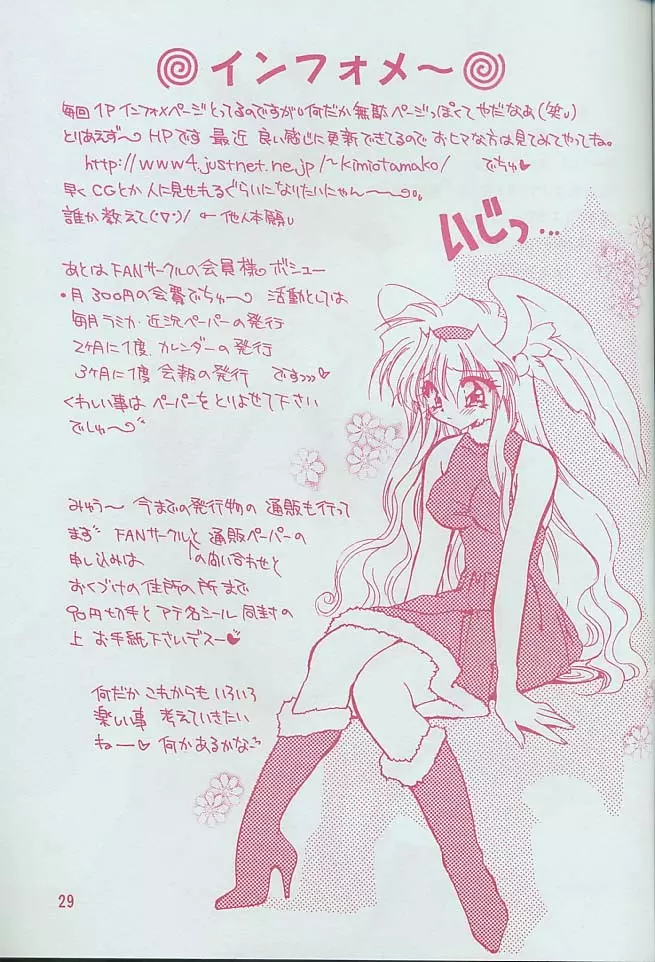 インフォメ～
毎回1Pインフォメページとってるのですが何だか無駄ページっぽくてやだなあ(笑)
とりあえず～HPです 最近 良い感じに更新できてるので おヒマな方は見てみてやってね。
http://www4.justnet.ne.jp/~kimiotamako/ でちゅ♥
早くCGとか人に見せれるぐらいになりたいにゃん～。
誰か教えて(°▽°)/ ←他人本願
いじっ…
あとはFANサークルの会員様 ボシュー
・月300円の会費でちゅ～ 活動としては
毎月ラミカ・近況ペーパーの発行
2ケ月に1度 カレンダーの発行
3ケ月に1度 会報の発行 ですっ♥
くわしい事は ペーパーをとりよせて下さい
でしゅ～
みゅう～ 今までの発行物の 通販も行って
ます FANサークルと 通販ペーパーの
申し込みは の問い合わせと
おくづけの住所の所まで
90円切手と アテ名シール 同封の
上 お手紙下さいデスー♥
何だか これからも いろいろ
楽しい事 考えていきたい
ねー♥ 何かあるかな～
29